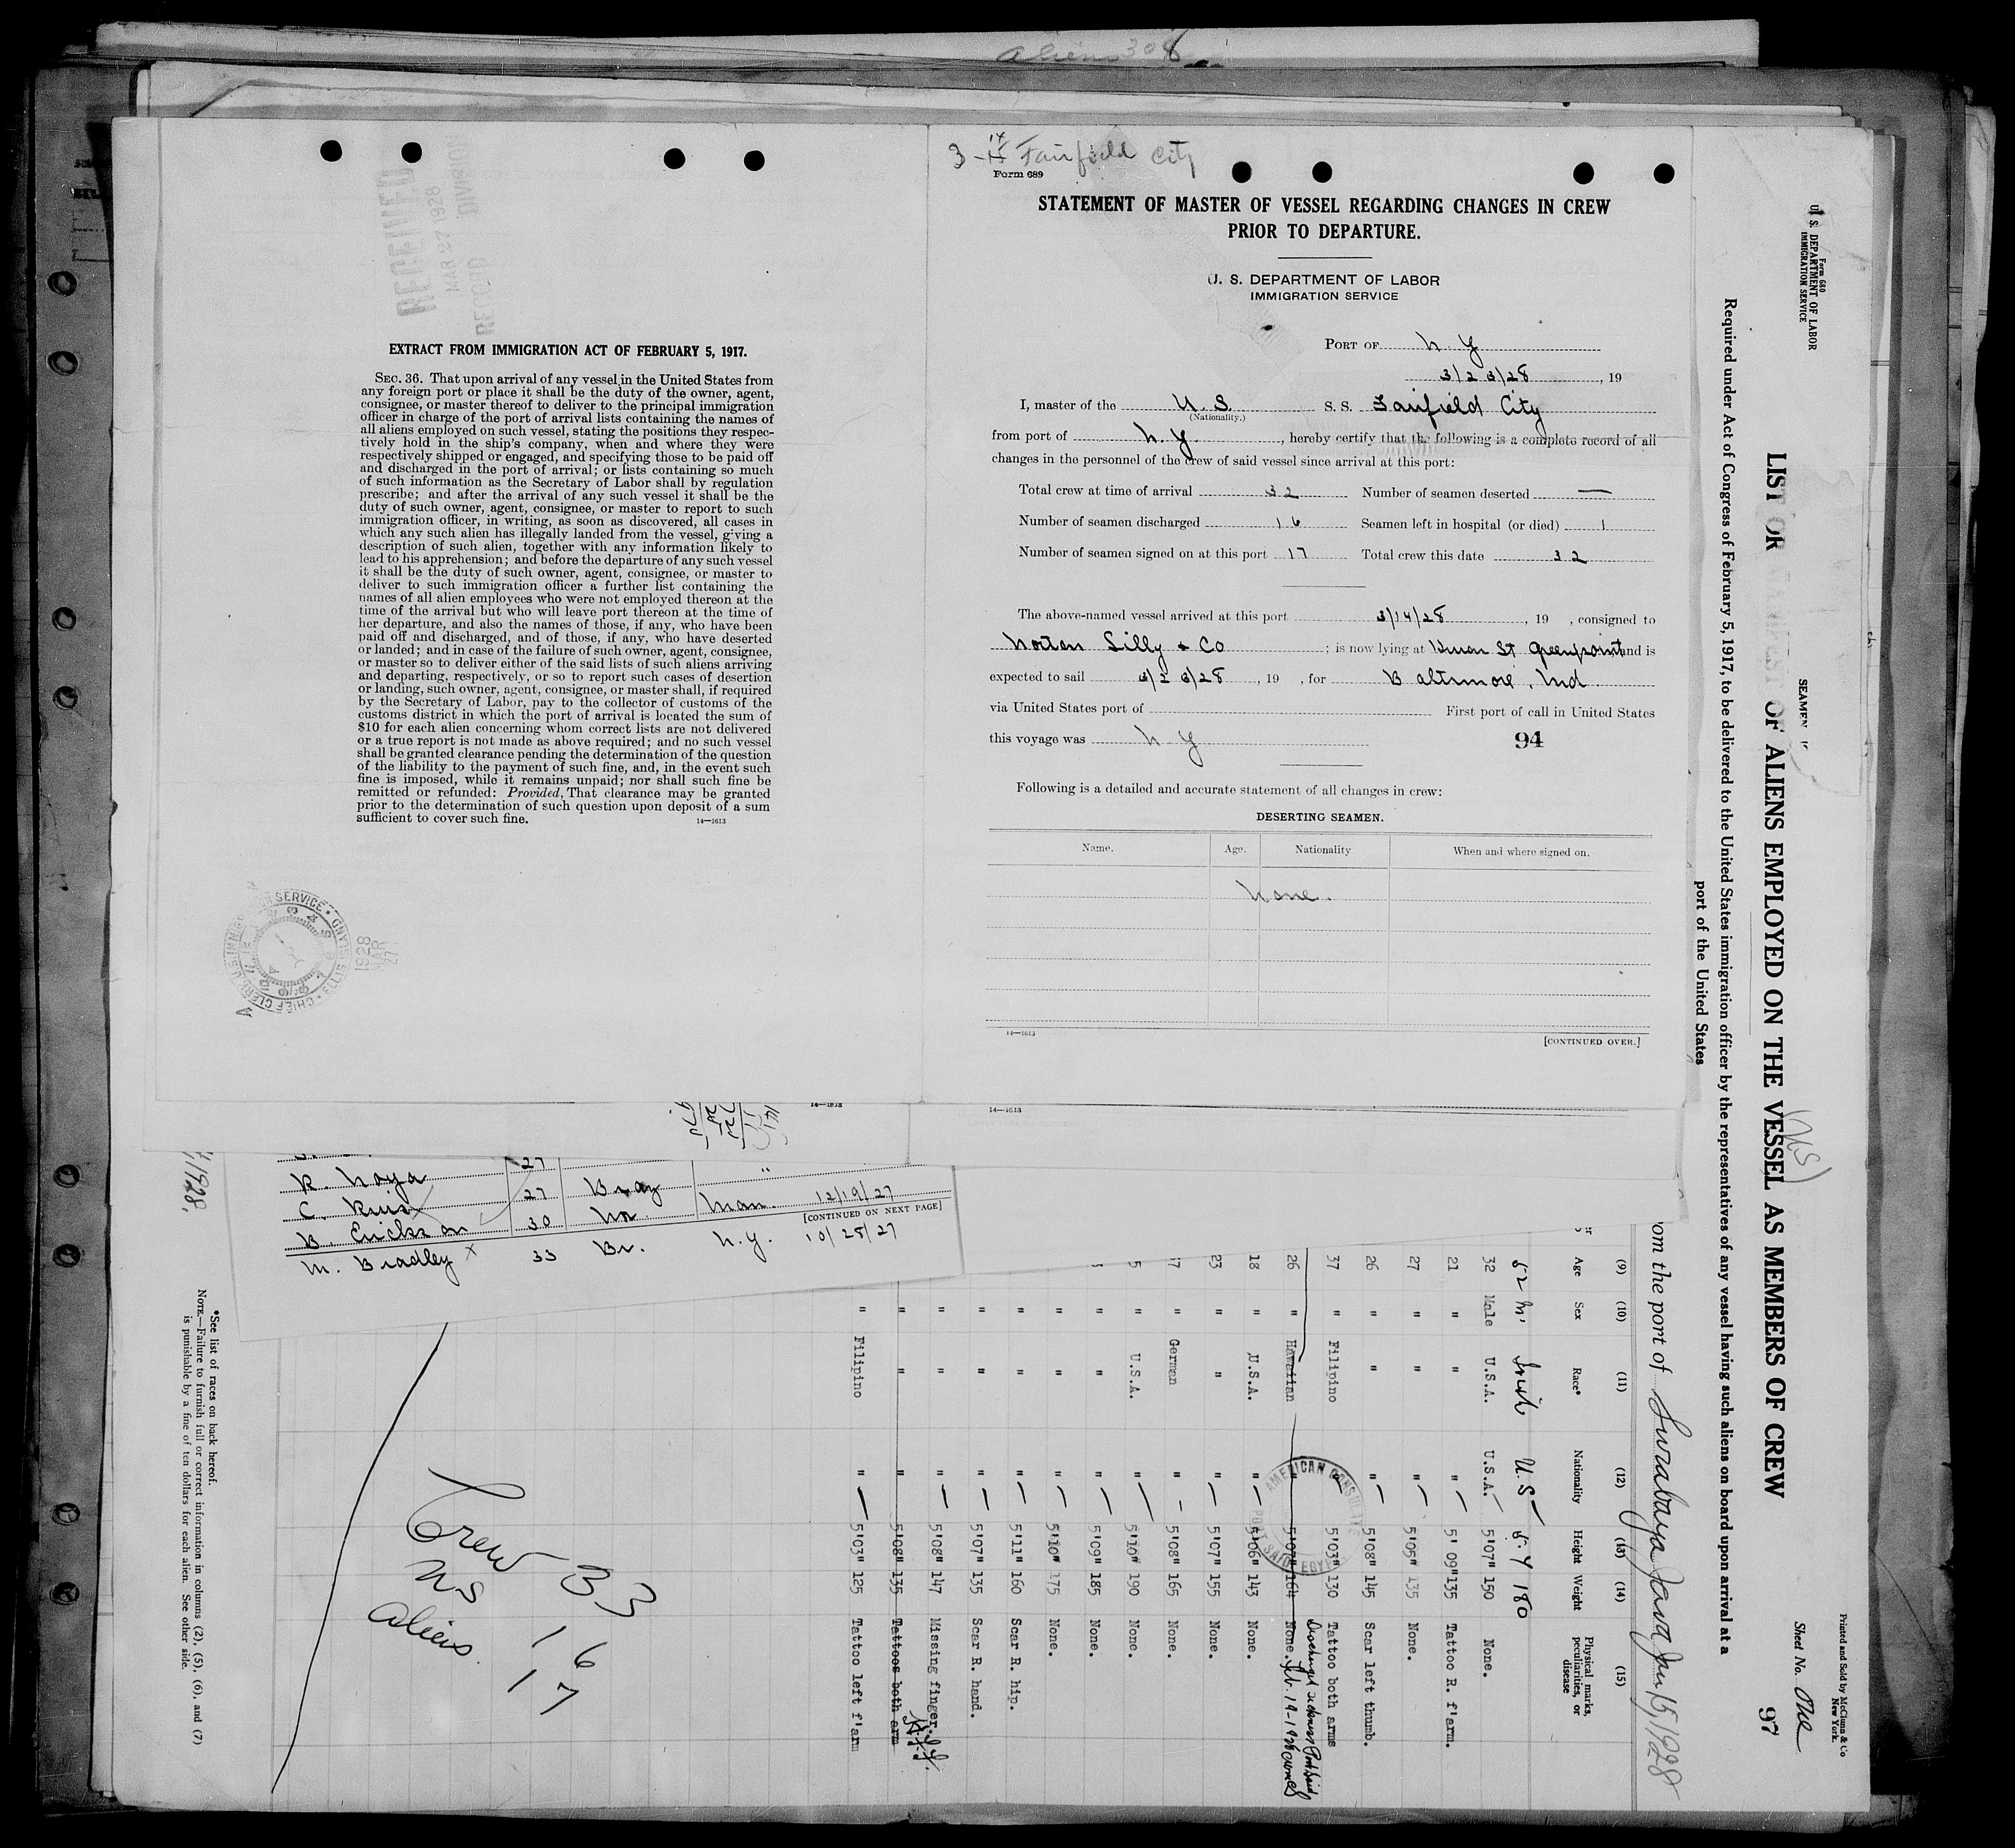 Aliens 308
3-14 Fairfield City
Form 689
STATEMENT OF MASTER OF VESSEL REGARDING CHANGES IN CREW
PRIOR TO DEPARTURE.
U. S. DEPARTMENT OF LABOR
IMMIGRATION SERVICE
PORT OF N Y
3/23/28, 19
I, master of the U. S. S. S. Fairfield City
(Nationality.)
from port of N. Y., hereby certify that the following is a complete record of all
changes in the personnel of the crew of said vessel since arrival at this port:
Total crew at time of arrival 32 Number of seamen deserted —
Number of seamen discharged 16 Seamen left in hospital (or died) 1
Number of seamen signed on at this port 17 Total crew this date 32
The above-named vessel arrived at this port 3/14/28, 19 , consigned to
Norton Lilly & Co ; is now lying at Huron St Greenpoint and is
expected to sail 3/23/28, 19 , for Baltimore, Md
via United States port of First port of call in United States
this voyage was N Y
94
Following is a detailed and accurate statement of all changes in crew:
DESERTING SEAMEN.
Name. Age. Nationality When and where signed on.
None.
14—1613
[CONTINUED OVER.]
RECEIVED
MAR 27 1928
RECORD DIVISION
EXTRACT FROM IMMIGRATION ACT OF FEBRUARY 5, 1917.
SEC. 36. That upon arrival of any vessel in the United States from
any foreign port or place it shall be the duty of the owner, agent,
consignee, or master thereof to deliver to the principal immigration
officer in charge of the port of arrival lists containing the names of
all aliens employed on such vessel, stating the positions they respec-
tively hold in the ship's company, when and where they were
respectively shipped or engaged, and specifying those to be paid off
and discharged in the port of arrival; or lists containing so much
of such information as the Secretary of Labor shall by regulation
prescribe; and after the arrival of any such vessel it shall be the
duty of such owner, agent, consignee, or master to report to such
immigration officer, in writing, as soon as discovered, all cases in
which any such alien has illegally landed from the vessel, giving a
description of such alien, together with any information likely to
lead to his apprehension; and before the departure of any such vessel
it shall be the duty of such owner, agent, consignee, or master to
deliver to such immigration officer a further list containing the
names of all alien employees who were not employed thereon at the
time of the arrival but who will leave port thereon at the time of
her departure, and also the names of those, if any, who have been
paid off and discharged, and of those, if any, who have deserted
or landed; and in case of the failure of such owner, agent, consignee,
or master so to deliver either of the said lists of such aliens arriving
and departing, respectively, or so to report such cases of desertion
or landing, such owner, agent, consignee, or master shall, if required
by the Secretary of Labor, pay to the collector of customs of the
customs district in which the port of arrival is located the sum of
$10 for each alien concerning whom correct lists are not delivered
or a true report is not made as above required; and no such vessel
shall be granted clearance pending the determination of the question
of the liability to the payment of such fine, and, in the event such
fine is imposed, while it remains unpaid; nor shall such fine be
remitted or refunded: Provided, That clearance may be granted
prior to the determination of such question upon deposit of a sum
sufficient to cover such fine.
14—1613
1928
MAR
27
14—1613
14—1613
27
R. Noya 27 Bray
C. Ruis 30 No Man. 12/19/27
[CONTINUED ON NEXT PAGE]
B. Erickson
M. Bradley x 33 Br. N. Y. 10/28/27
Form 680
U. S. DEPARTMENT OF LABOR
IMMIGRATION SERVICE
Printed and Sold by McClunn & Co
New York.
Sheet No. One
97
LIST OR MANIFEST OF ALIENS EMPLOYED ON THE VESSEL AS MEMBERS OF CREW
(US)
Required under Act of Congress of February 5, 1917, to be delivered to the United States immigration officer by the representatives of any vessel having such aliens on board upon arrival at a
port of the United States
om the port of Surabaya Java Jan 15, 1928
(9) (10) (11) (12) (13) (14) (15)
Age Sex Race* Nationality Height Weight Physical marks, peculiarities, or disease
52 M. Irish U.S 5.4 180
32 Male U.S.A. U.S.A. 5'07" 150 None.
21 " " " 5'09" 135 Tattoo R. f'arm.
27 " " " 5'05" 135 None.
26 " " " 5'08" 145 Scar left thumb.
37 " Filipino " 5'03" 130 Tattoo both arms
Discharged sickness Port Said
26 " Hawaiian " 5'07" 164 None. Feb. 19-1928
18 " U.S.A. " 5'06" 143 None.
23 " " " 5'07" 155 None.
" German " 5'08" 165 None.
" U.S.A. " 5'10" 190 None.
" " " 5'09" 185 None.
" " " 5'10" 175 None.
" " " 5'11" 160 Scar R. hip.
" " " 5'07" 135 Scar R. hand.
" " " 5'08" 147 Missing finger.
" " " 5'08" 135 Tattoos both arm
" Filipino " 5'03" 125 Tattoo left f'arm
AMERICAN CONSULATE
PORT SAID, EGYPT
Crew 33
US 16
Aliens 17
1928
*See list of races on back hereof.
NOTE.—Failure to furnish full or correct information in columns (2), (5), (6), and (7)
is punishable by a fine of ten dollars for each alien. See other side.